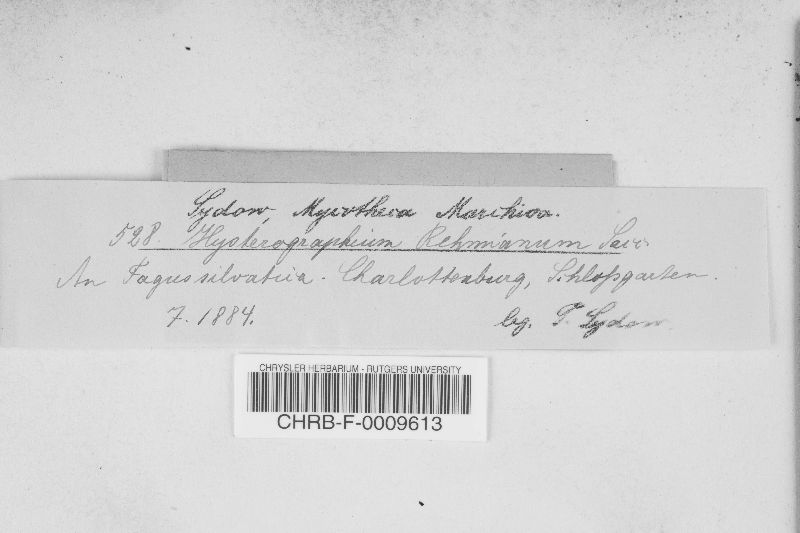 Sydow, Mycotheca Marchica.
528. Hysterographium Rehmianum Sacc.
An Fagus silvatica. Charlottenburg, Schloßgarten.
7. 1884. leg. P. Sydow.
CHRYSLER HERBARIUM - RUTGERS UNIVERSITY
CHRB-F-0009613